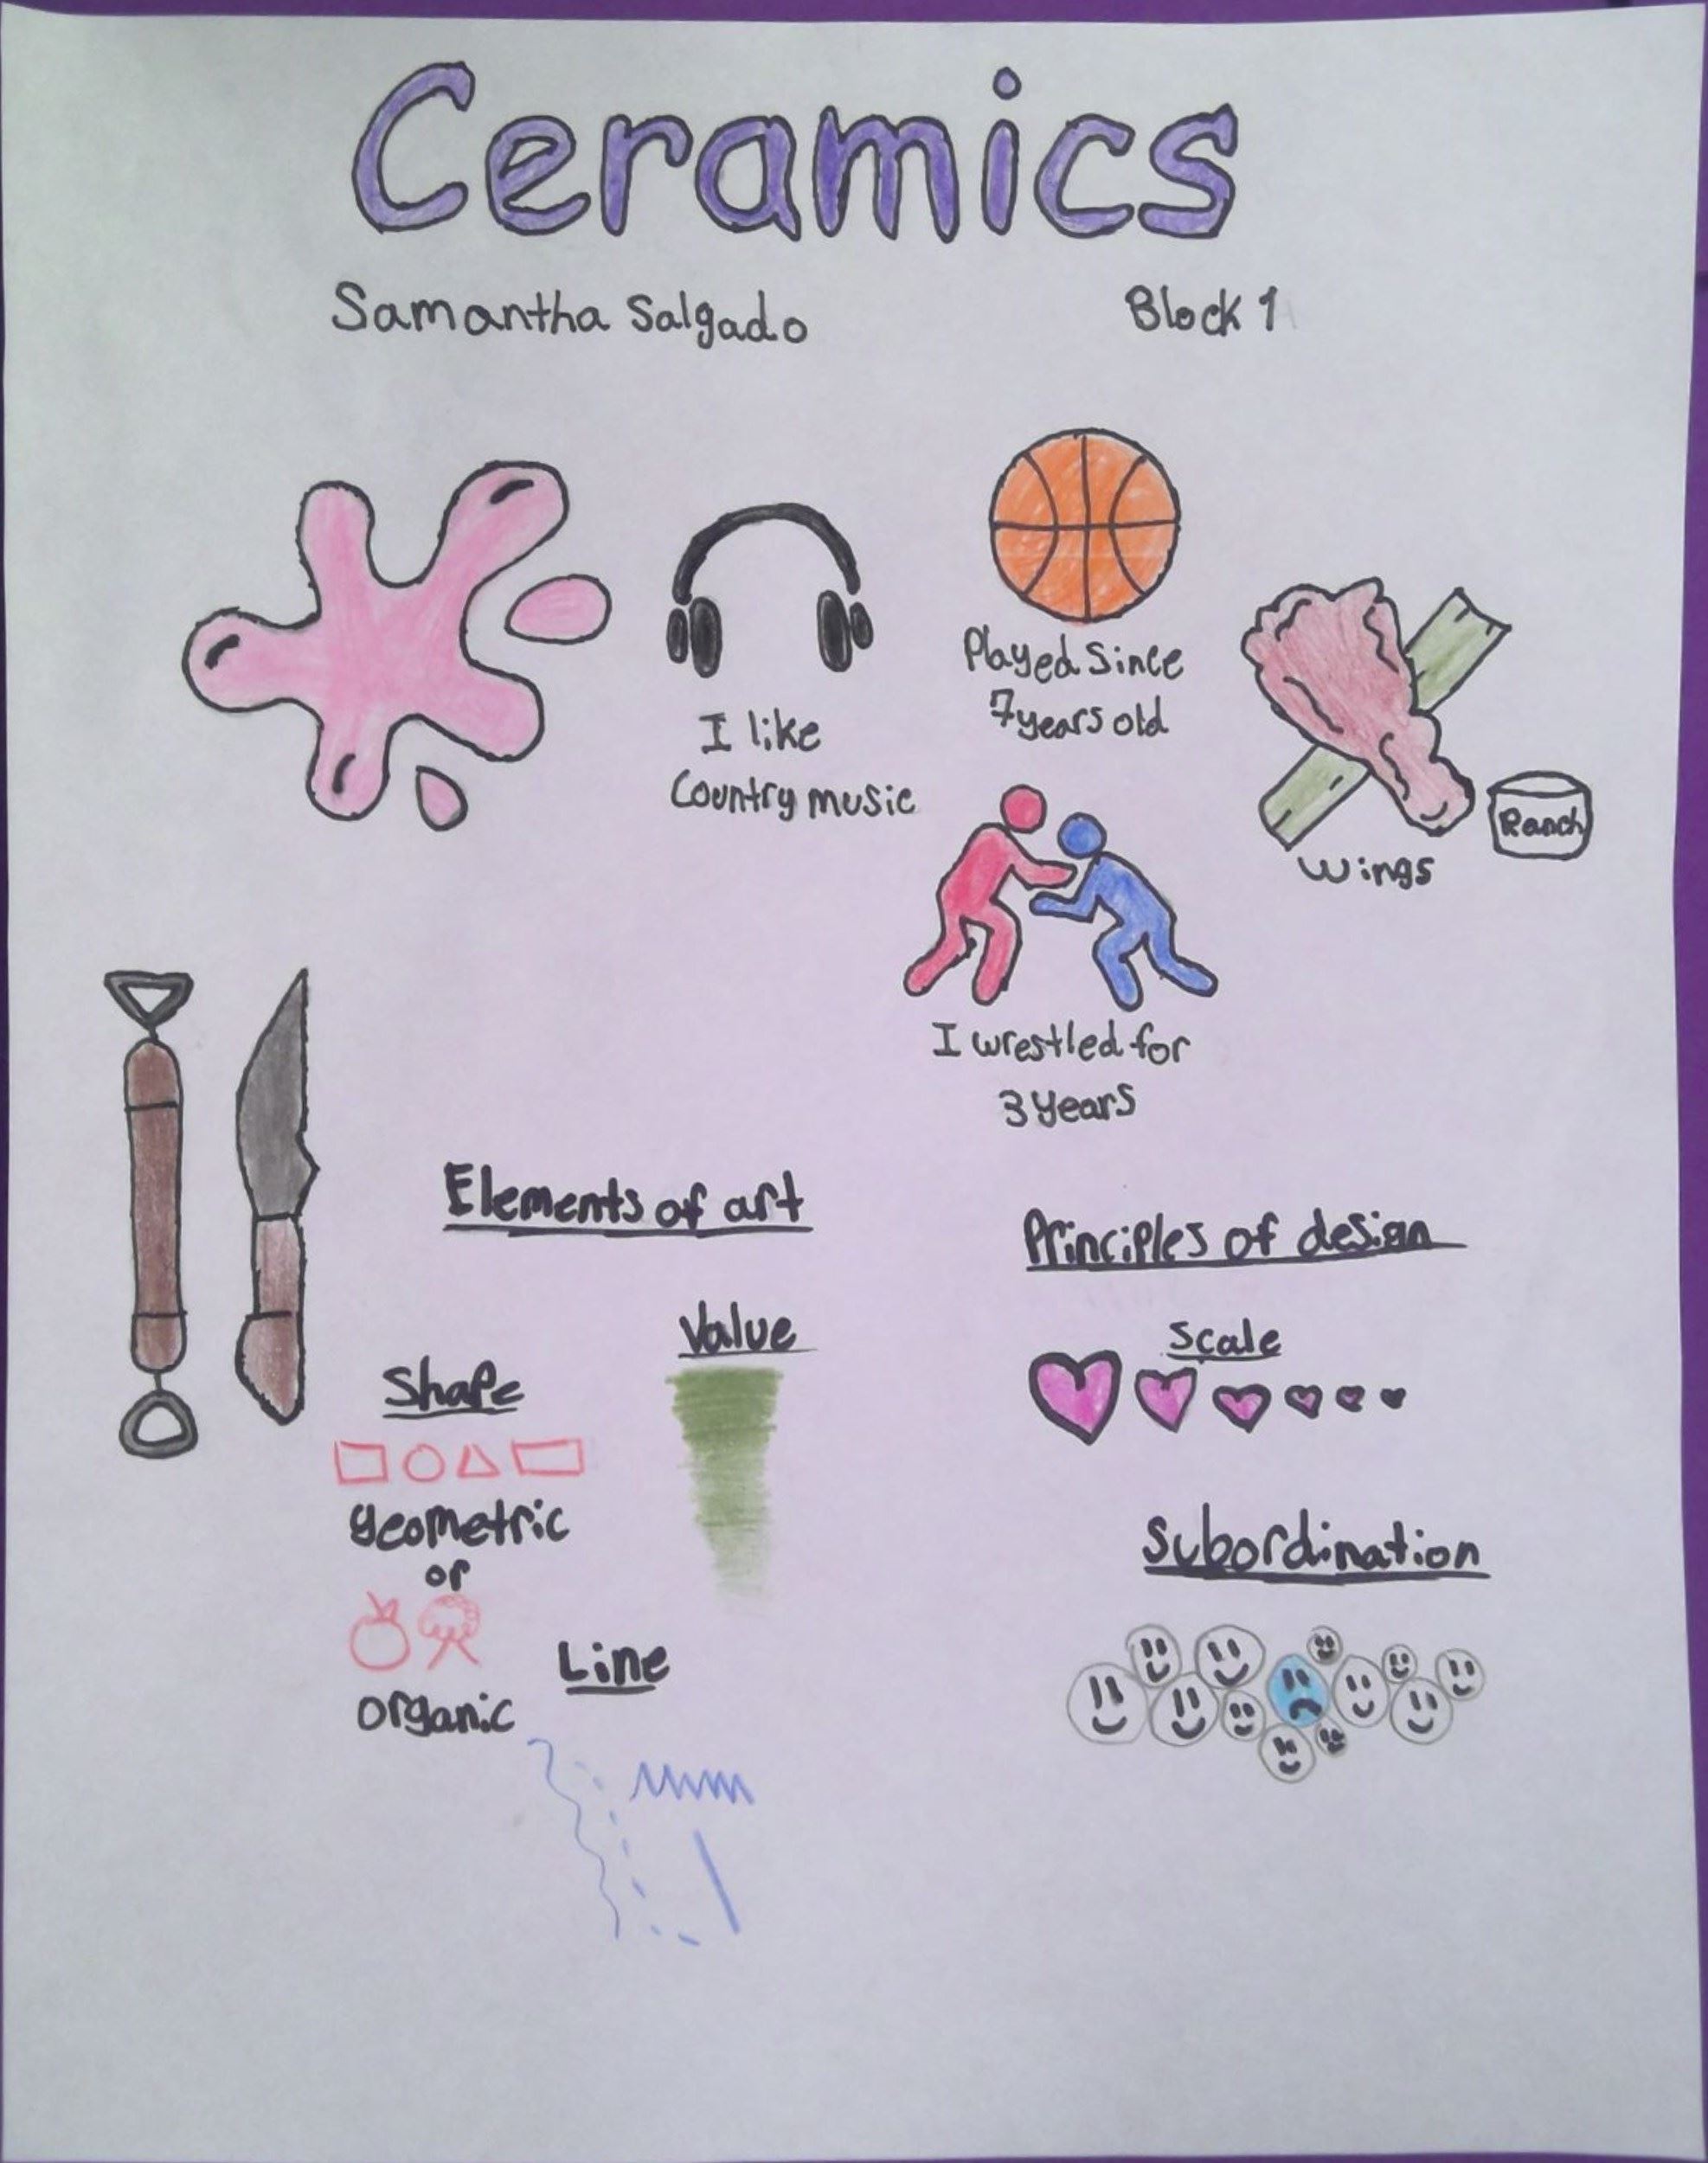 Ceramics
Samantha Salgado
Block 1
I like
Country music
Played Since
7 years old
Wings
Ranch
I wrestled for
3 Years
Elements of art
Principles of design
Value
Scale
Shape
geometric
or
organic
Line
Subordination